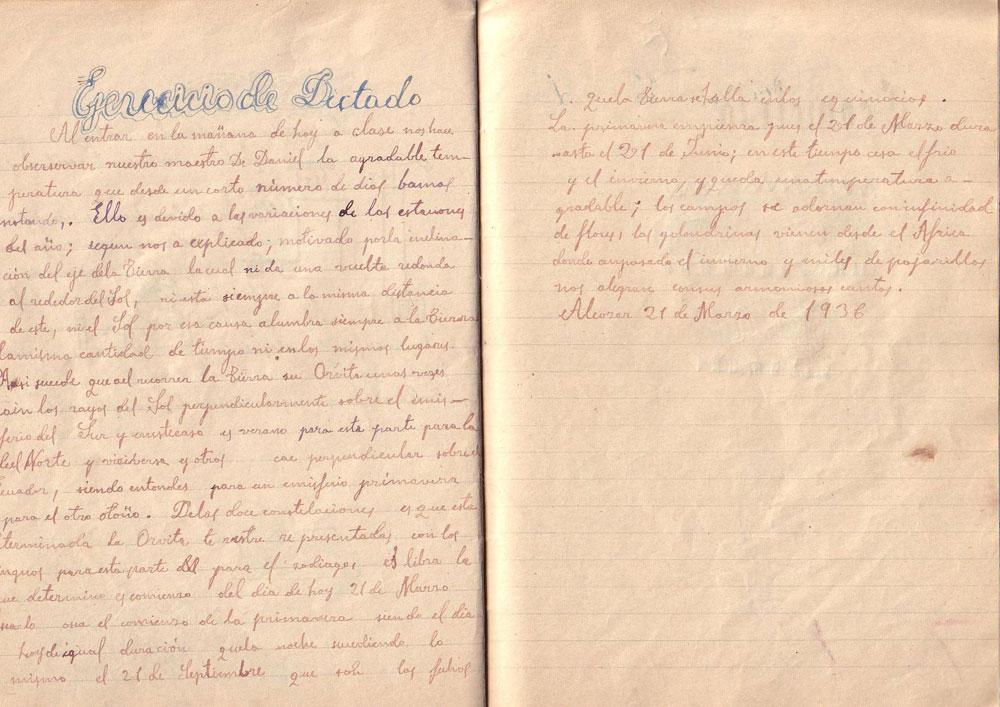 Ejercicio de Dictado
Al entrar en la mañana de hoy a clase nos hace
observar nuestro maestro De Daniel la agradable tem-
peratura que desde un corto número de dias bamos
notando,. Ello es devido a las variaciones de las estaciones
del año; segun nos a explicado; motivado por la inclina-
ción del eje dela Tierra la cual ni da una vuelta redonda
al rededor del Sol, ni esta siempre a la misma distancia
de este, ni el Sol por esa causa alumbra siempre a la Tierra
la misma cantidad de tiempo ni en los mismos lugares.
Asi sucede que ael recorrer la Tierra su Orvita unas veces
cain los rayos del Sol perpendicularmente sobre el emis-
ferio del Sur y en este caso es verano para esta parte para la
del Norte y viciversa y otros cae perpendicular sobre el
Ecuador, siendo entonces para un emisferio primavera
para el otro otoño. Delas doce constelaciones es que esta
terminada la Orvita te rrestre re presentadas con los
para esta parte del para el zodiagos es libra la
que determina es comienzo del dia de hoy 21 de Marzo
osea el comienzo de la primavera siendo el dia
hoy de igual duración quela noche sucediendo lo
mismo el 21 de Septiembre que son las fechas
quela Tierra se halla enlos equinocios.
La primavera empienza pues el 21 de Marzo dura
asta el 21 de Junio; en este tiempo cesa el frio
y el invierno, y queda una temperatura a-
gradable; los campos se adornan con infinidad
de flores, las golondrinas vienen desde el Africa
donde an pasado el invierno y miles de pajarillos
nos alegran consus armoniosos cantos.
Alcozar 21 de Marzo de 1936